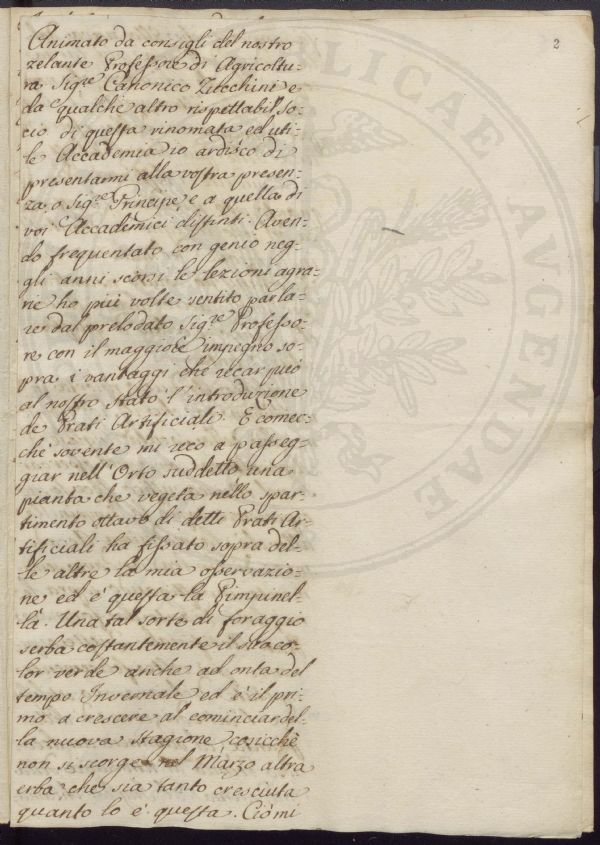 2
Animato da consigli del nostro
zelante Professore di Agricoltu-
ra Sig.re Canonico Zucchini e
da qualche altro rispettabil so-
cio di questa rinomata ed uti-
le Accademia io ardisco di
presentarmi alla vostra presen-
za o Sig.re Principe e a quella di
voi Accademici distinti. Aven-
do frequentato con genio neg-
gli anni scorsi le lezioni agra-
rie ho più volte sentito parla-
re dal prelodato Sig.re Professo-
re con il maggiore impegno so-
pra i vantaggi che recar può
al nostro stato l'introduzione
de Prati Artificiali. E comec-
chè sovente mi reco a passeg-
giar nell'Orto suddetto una
pianta che vegeta nello spar-
timento ottavo di detti Prati Ar-
tificiali ha fissato sopra del-
le altre la mia osservazio-
ne ed è questa la Pimpinel-
la. Una tal sorte di foraggio
serba costantemente il suo co-
lor verde anche ad onta del
tempo Invernale ed è il pri-
mo a crescere al cominciar del-
la nuova stagione cosicchè
non si scorge nel Marzo altra
erba che sia tanto cresciuta
quanto lo è questa. Ciò mi
PUBLICAE
AUGENDAE